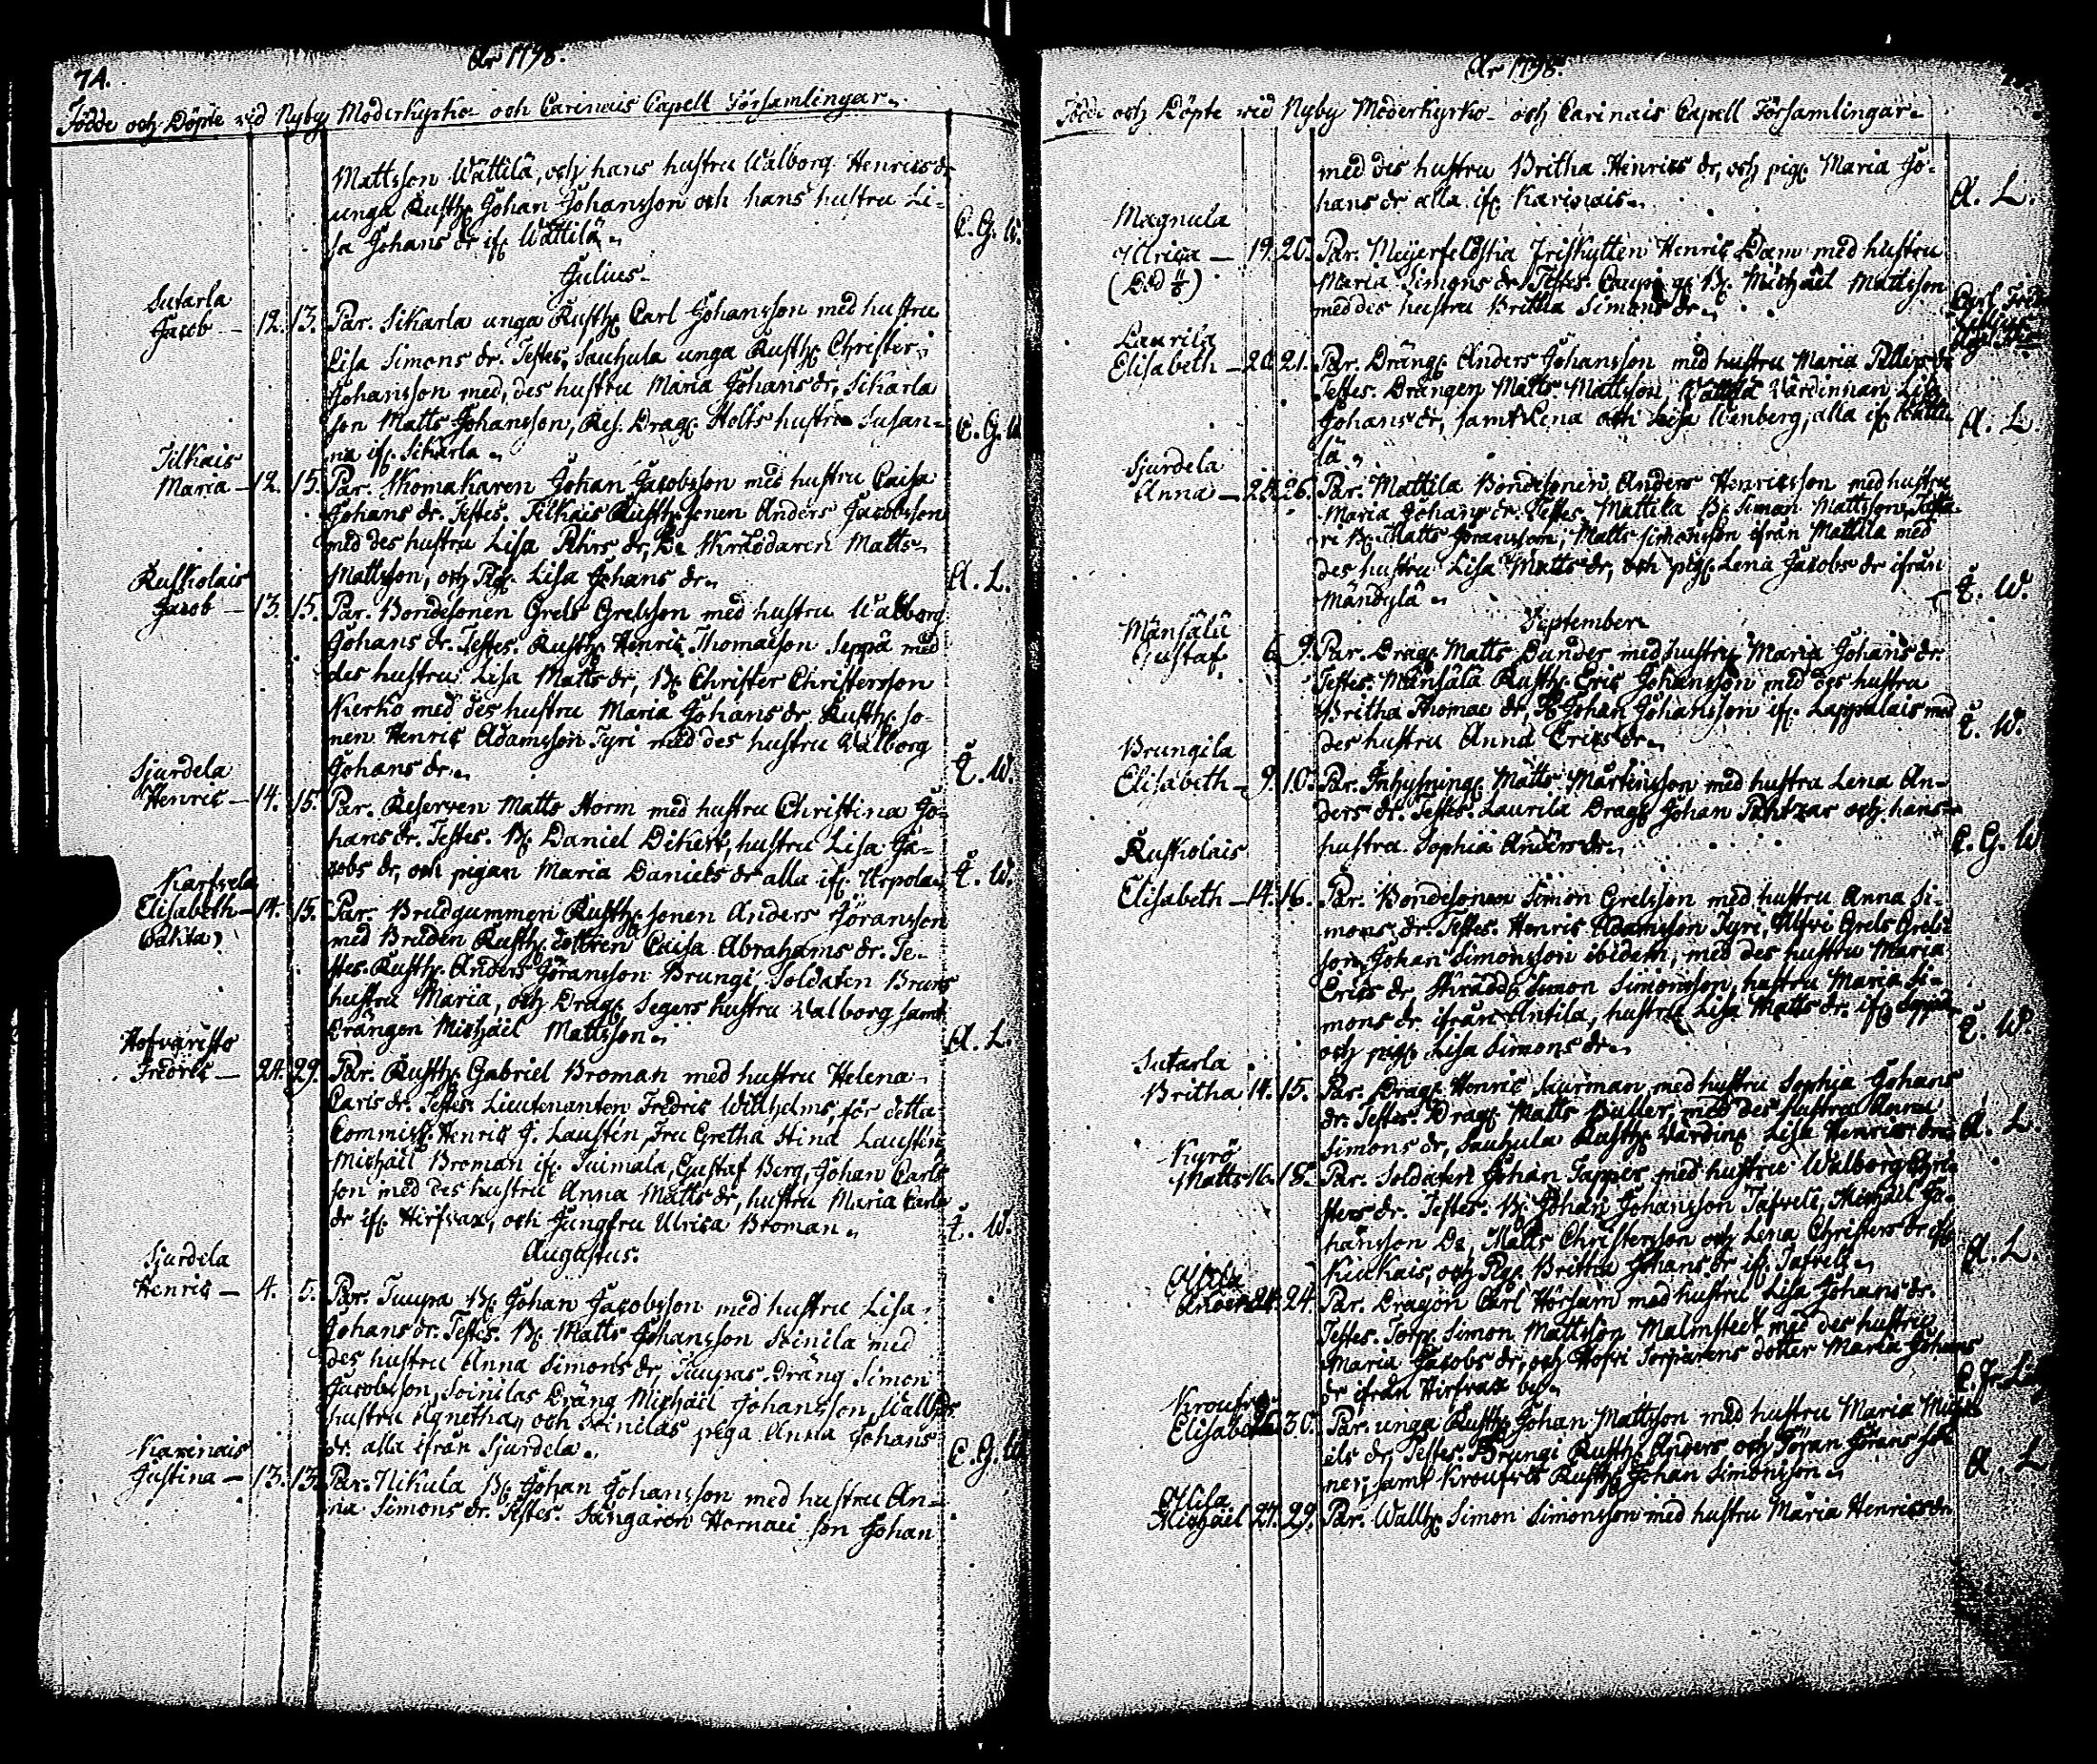 74.
År 1798.
Födde och Döpte vid Nyby Moderkyrko- och Carinais Capell Församlingar.
Mattsson Wättilä, och hans hustru Walborg Henrics dr
unga Rusth. Johan Johansson och hans hustru Li-
sa Johans dr if. Wättilä. C. G. W.
Julius.
Sutarla
Jacob – 12. 13. Par. Sikarla unga Rusth. Carl Johansson med hustru
Lisa Simons dr. Testes, Sauhula unga Rusth. Christer
Johansson med des hustru Maria Johans dr, Sikarla
son Matts Johansson, Res. Drag. Holts hustru Susan- C. G. W.
na if. Sikarla.
Tilkais
Maria – 12. 15. Par. Skomakaren Johan Jacobsson med hustru Caisa
Johans dr. Testes. Tilkais Rusth. sonen Anders Jacobsson
med des hustru Lisa Pehrs dr, Matts
Mattsson, och Pig. Lisa Johans dr. A. L.
Ruskolais
Jacob – 13. 15. Par. Bondesonen Grels Grelsson med hustru Walborg
Johans dr. Testes. Rusth. Henric Thomasson Seppä med
des hustru Lisa Matts dr, B. Christer Christersson
Kerko med des hustru Maria Johans dr, Rusth. so-
nen Henric Adamsson Tyri med des hustru Walborg
Johans dr. W.
Sjurdela
Henric – 14. 15. Par. Reserven Matts Storm med hustru Christina Jo-
hans dr. Testes. B. Daniel Dikert, hustru Lisa Ja-
cobs dr, och pigan Maria Daniels dr alla if. Urpola. W.
Karfvela
Elisabeth – 14. 15. Par. Brudgummen Rusth. sonen Anders Göransson
med Bruden Rusth. dottren Caisa Abrahams dr. Te-
stes. Rusth. Anders Göransson Brungi, Soldaten Bruns
hustru Maria, och Drag. Segers hustru Walborg samt
Drängen Michäel Mattsson. A. L.
Hofväristo
Fredric – 24. 29. Par. Rusth. Gabriel Broman med hustru Helena
Carls dr. Testes. Lieutenanten Fredric Willhelms, för detta
Commiss. Henric J. Laustén, Fru Gretha Stina Laustén,
Michäel Broman if. Tuimala, Gustaf Berg, Johan Carls
son med des hustru Anna Matts dr, hustru Maria Carls
dr if. Hirfvax, och Jungfru Ulrica Broman. W.
Augustus.
Sjurdela
Henric – 4. 5. Par. Tuupa B. Johan Jacobsson med hustru Lisa
Johans dr. Testes. B. Matts Johansson Soinila med
des hustru Anna Simons dr, Tuupas Dräng Simon
Jacobsson, Soinilas Dräng Michäel Johansson, Wallh.
hustru Agnetha, och Soinilas piga Anna Johans
dr. alla ifrån Sjurdela. C. G. W.
Karinais
Justina – 13. 13. Par. Nikula B. Johan Johansson med hustru An-
na Simons dr. Testes. Sångaren Hornaei son Johan
År 1798.
Födde och Döpte vid Nyby Moderkyrko- och Carinais Capell Församlingar.
med des hustru Britha Henrics dr, och pig. Maria Jo-
hans dr alla if. Karinais. A. L.
Magnula
Ulrica – 19. 20. Par. Meijerfeldtska Friskytten Henric Dam med hustru
Maria Simons dr. Testes. B. Michäel Mattsson
med des hustru Britha Simons dr.
Laurila
Elisabeth – 20. 21. Par. Dräng. Anders Johansson med hustru Maria
Testes. Drängen Matts Mattsson, Wättilä Värdinnan Lisa
Johans dr, samt Lena och Lisa Wenberg, alla if. Wätti
lä. A. L.
Sjurdela
Anna – 25. 26. Par. Mattila Bondesonen Anders Henricsson med hustru
Maria Johans dr. Testes. Mattila B. Simon Mattsson,
Matts Göransson, Matts Simonsson ifrån Mattila med
des hustru Lisa Matts dr, och pig. Lena Jacobs dr ifrån
Mändylä. W.
September.
Mänsälä
Gustaf 6. 9. Par. Drag. Matts Dunder med hustru Maria Johans dr.
Testes. Mänsälä Rusth. Eric Johansson med des hustru
Britha Thomae dr, B. Johan Johansson if. Lappalais med
des hustru Anna Erics dr. W.
Brungila
Elisabeth – 9. 10. Par. Inhysning. Matts Mårtensson med hustru Lena An-
ders dr. Testes. Laurila Drag. Johan och hans
hustru Sophia Anders dr. C. G. W
Ruskolais
Elisabeth – 14. 16. Par. Bondesonen Simon Grelsson med hustru Anna Si-
mons dr. Testes. Henric Adamsson Tyri, Grels Grels
son, Johan Simonsson ibidem, med des hustru Maria
Erics dr, Skrädd. Simon Simonsson, hustru Maria Si-
mons dr. ifrån Antila, hustru Lisa Matts dr. if. Seppä
och pig. Lisa Simons dr. W.
Sutarla
Britha 14. 15. Par. Drag. Henric Lurman med hustru Sophia Johans
dr. Testes. Drag. Matts Buller, med des hustru Anna
Simons dr, Sauhula Rusth. Värdin. Lisa Henrics dr. A. L.
Kyrö
Matts 16. 18. Par. Soldaten Johan Tapper med hustru Walborg Chri-
sters dr. Testes. B. Johan Johansson Tafvela, Michäel Jo-
hansson Matts Christersson och Lena Christers dr if.
Kiukais, och Pig. Britha Johans dr if. Tafvela. A. L.
24. Par. Dragon Carl Hörsam med hustru Lisa Johans dr.
Testes. Torp. Simon Mattsson Malmstedt med des hustru
Maria Jacobs dr, och Hofvi Torparens dotter Maria Johans
dr ifrån Hirfvax by.
Elisabeth 30. Par. unga Rusth. Johan Mattsson med hustru Maria Micha
els dr, Testes. Brungi Rusth. Anders och Göran Görans sö
ner, samt Rusth. Johan Simonsson. A. L
Allila
Michäel 27. 29. Par. Wallh. Simon Simonsson med hustru Maria Henrics dr